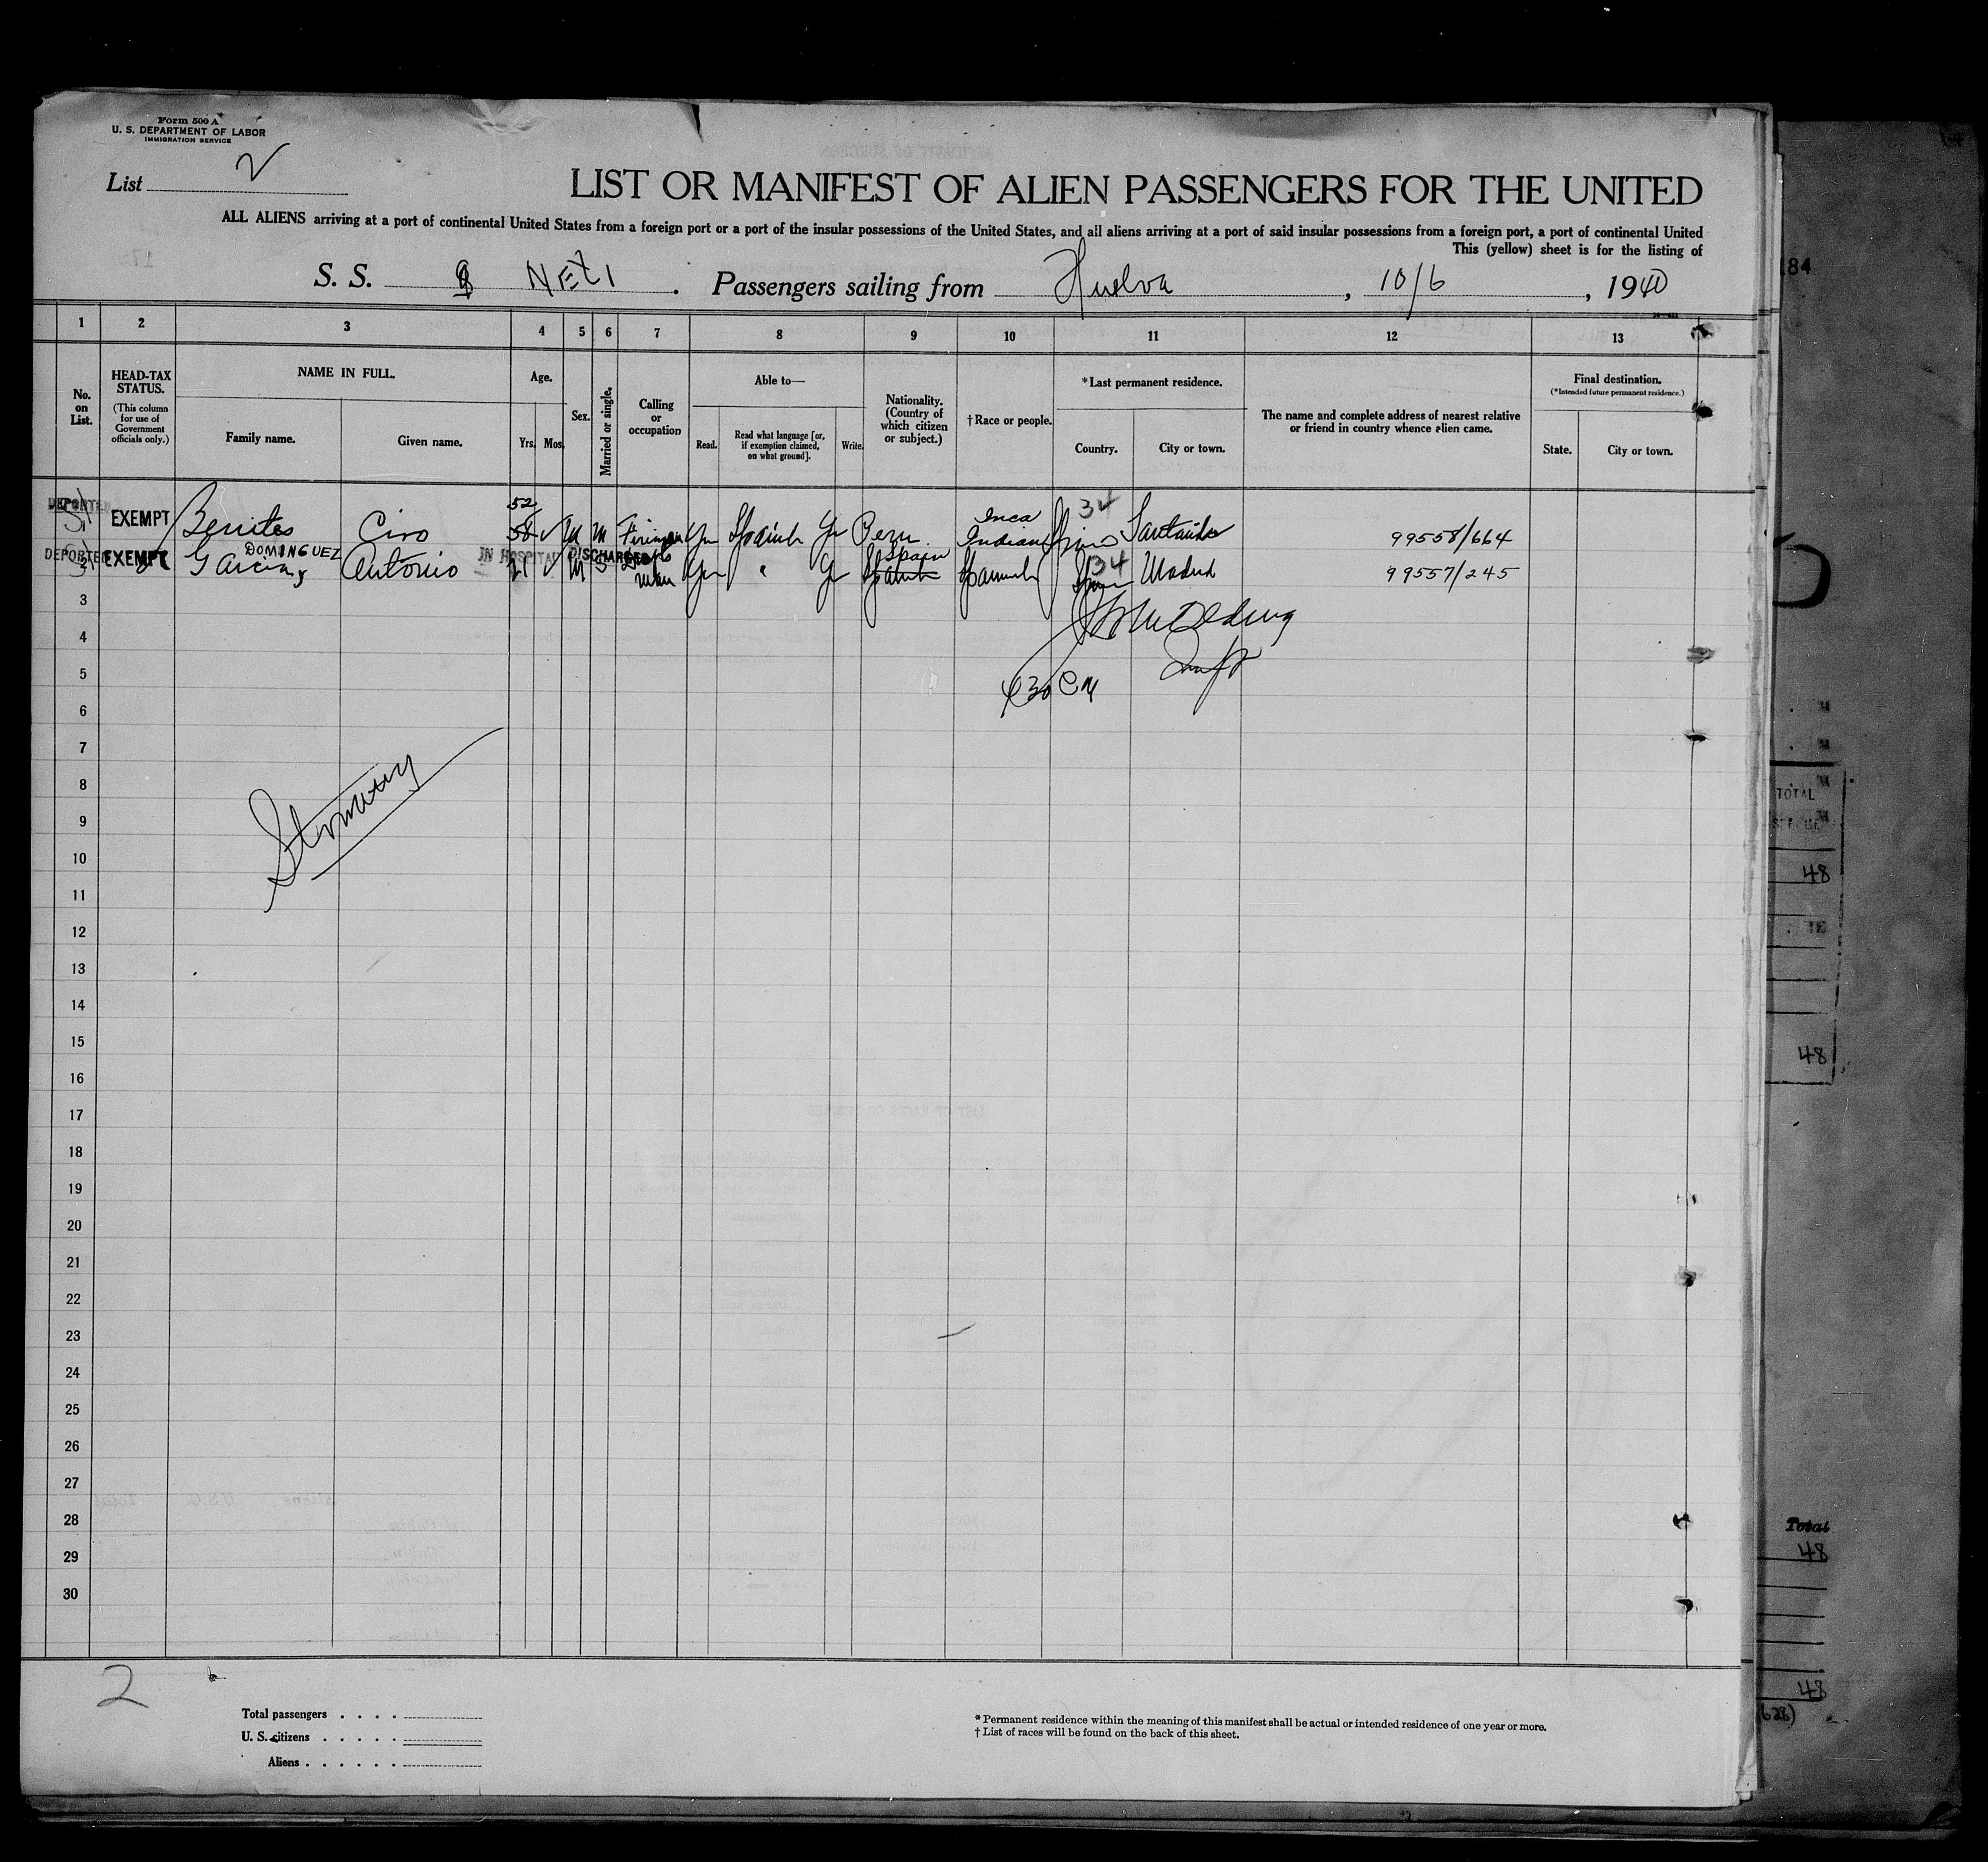 Form 500 A
U. S. DEPARTMENT OF LABOR
IMMIGRATION SERVICE
List 2
LIST OR MANIFEST OF ALIEN PASSENGERS FOR THE UNITED
ALL ALIENS arriving at a port of continental United States from a foreign port or a port of the insular possessions of the United States, and all aliens arriving at a port of said insular possessions from a foreign port, a port of continental United
This (yellow) sheet is for the listing of
S. S. NEtI . Passengers sailing from Huelva , 10/6 , 1940
1 2 3 4 5 6 7 8 9 10 11 12 13
No. on List.
HEAD-TAX STATUS.
(This column for use of Government officials only.)
NAME IN FULL.
Family name. Given name.
Age.
Yrs. Mos.
Sex.
Married or single.
Calling or occupation
Able to—
Read. Read what language [or, if exemption claimed, on what ground]. Write.
Nationality. (Country of which citizen or subject.)
†Race or people.
*Last permanent residence.
Country. City or town.
The name and complete address of nearest relative or friend in country whence alien came.
Final destination.
(*Intended future permanent residence.)
State. City or town.
DEPORTED EXEMPT Benites Ciro 52 58 M M Fireman Yes Spanish Yes Peru Inca Indian 34 Santander 99558/664
DEPORTED EXEMPT Garcia y DOMINGUEZ Antonio IN HOSPITAL DISCHARGED 21 M S man Yes " Yes Spain Spanish Spanish 34 Spain Madrid 99557/245
3
4
5
6
7
8
9
10
11
12
13
14
15
16
17
18
19
20
21
22
23
24
25
26
27
28
29
30
2
Total passengers . . . .
U. S. citizens . . . . .
Aliens . . . . . .
* Permanent residence within the meaning of this manifest shall be actual or intended residence of one year or more.
† List of races will be found on the back of this sheet.
184
TOTAL
48
48
Total
48
48
628)